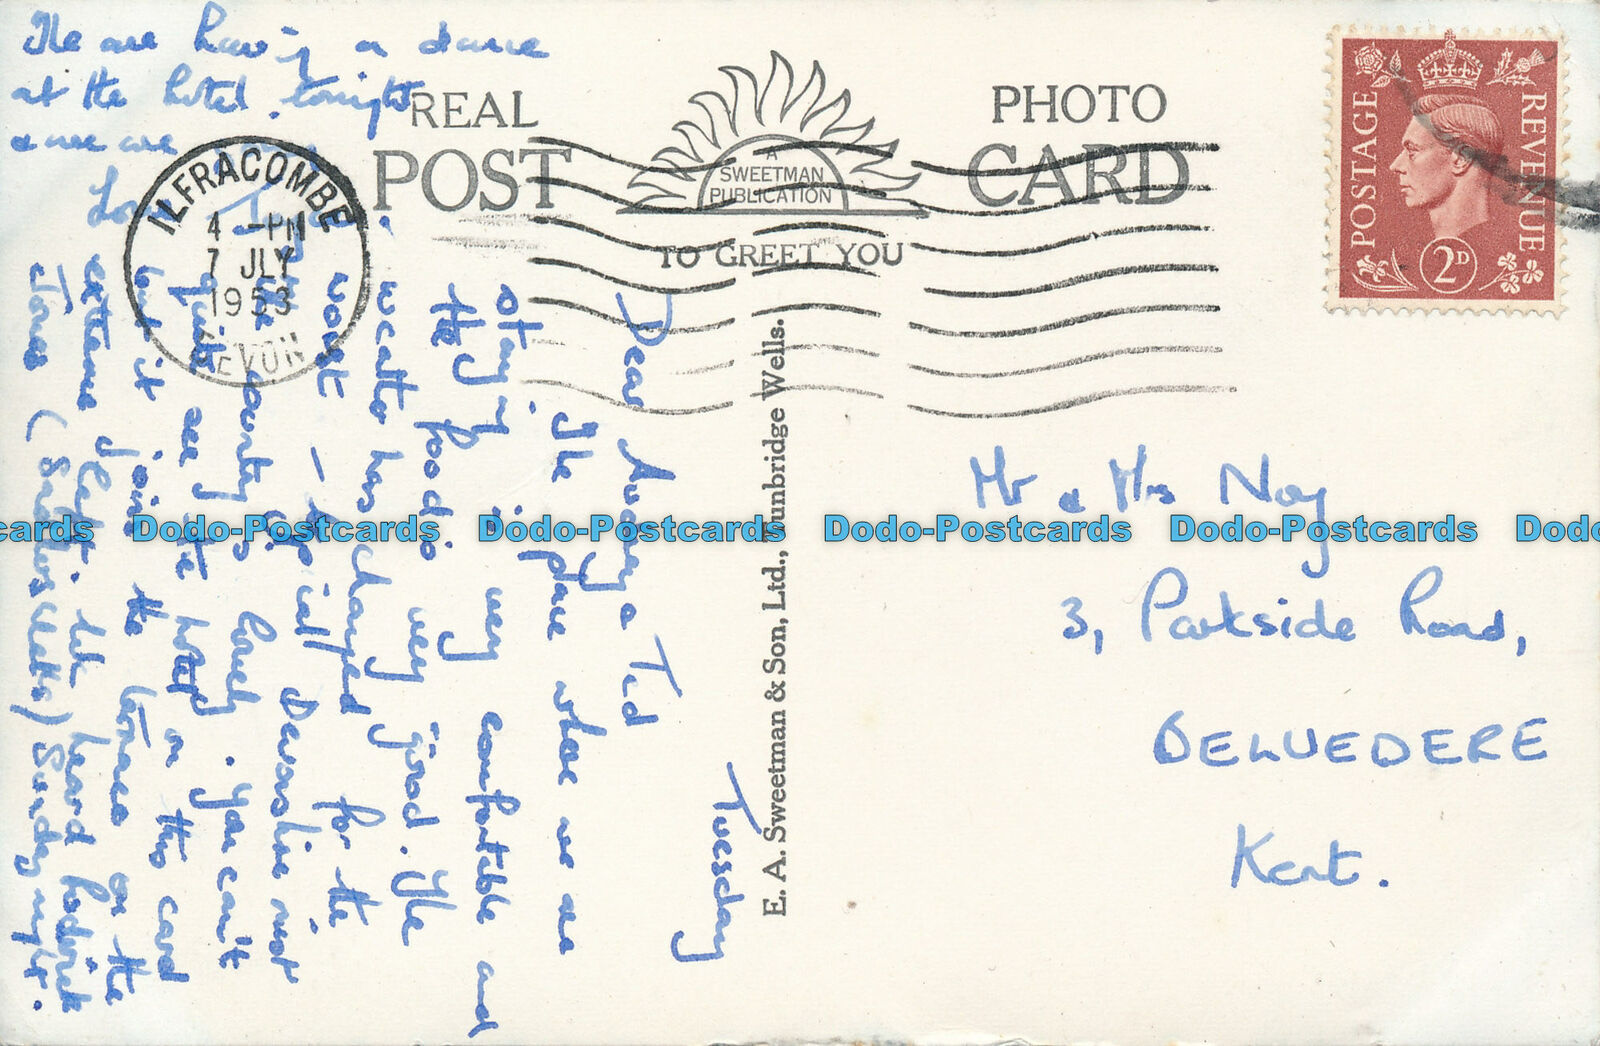 Tuesday
Dear Audrey & Ted
The place where we are
staying is very comfortable and
the food is very good. The
weather has changed for the
worst – typical Devonshire mist
the country is lovely. You can't
quite see the hotel on this card
but it joins the terrace on the
extreme left. We heard
Jones ( ) Sunday night.
We are having a dance
at the hotel tonight
& we are
Love
REAL PHOTO
POST CARD
A
SWEETMAN
PUBLICATION
TO GREET YOU
E. A. Sweetman & Son, Ltd., Tunbridge Wells.
ILFRACOMBE
4 - PM
7 JLY
1953
DEVON
POSTAGE REVENUE
2D
Mr & Mrs Noy
3, Parkside Road,
BELVEDERE
Kent.
Dodo-Postcards Dodo-Postcards Dodo-Postcards Dodo-Postcards